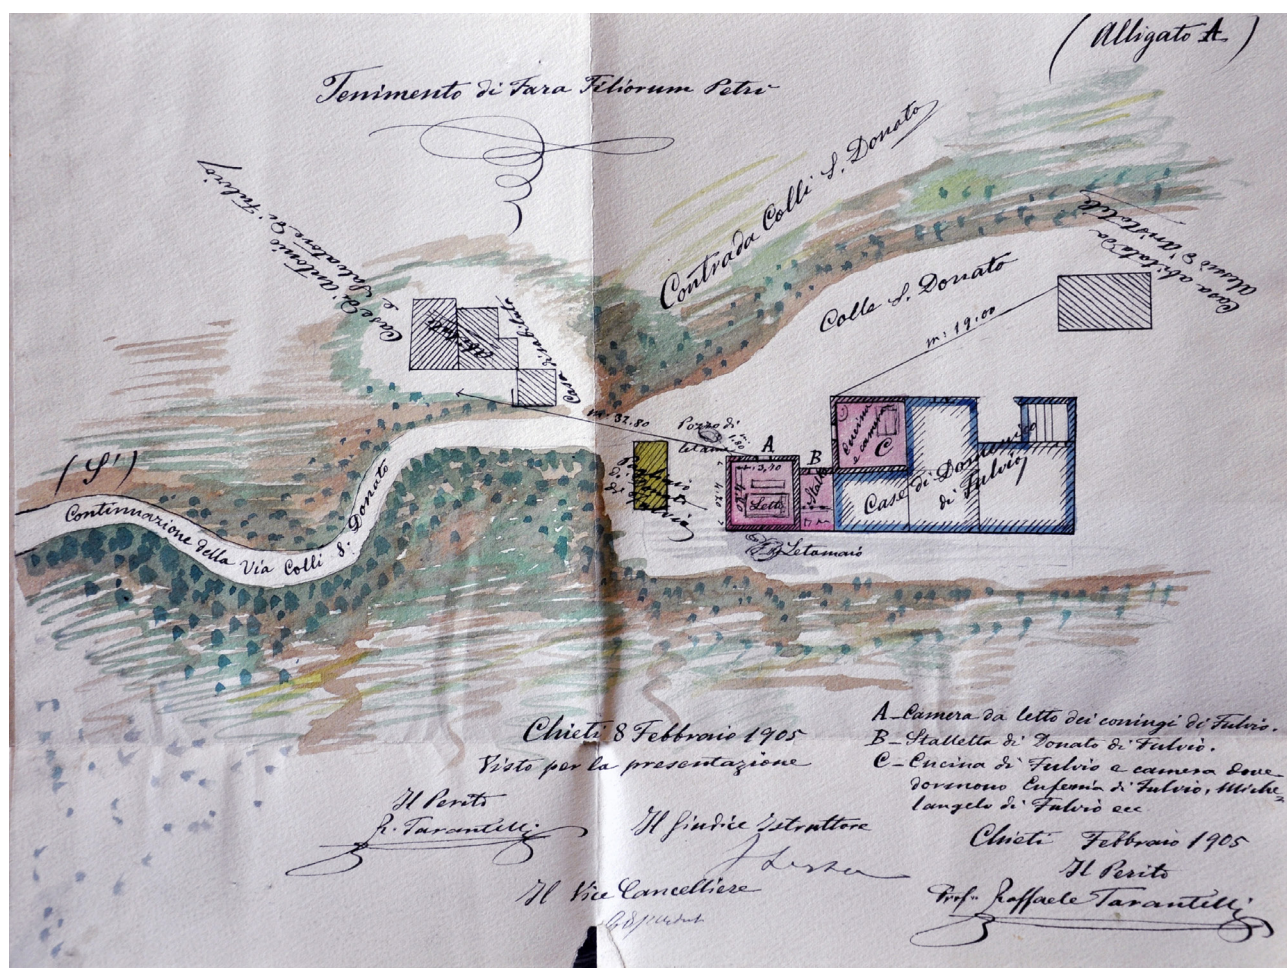 (Alligato A)
Tenimento di Fara Filiorum Petri
Contrada Colli S. Donato
Colle S. Donato
Case di Antonio
e Salvatore di Fulvio
Casa disabitata
Casa abitata da
m: 19:00
m: 32.80
Pozzo di
letame
1.80
(S')
Continuazione della Via Colli S. Donato
A
B
C
Cucina
e camera
Stalla
3,70
4.20
4.80
Letto
Case di Domenico
di Fulvio
Letamaio
Chieti 8 Febbraio 1905
Visto per la presentazione
Il Perito
R. Tarantelli
Il Giudice Istruttore
Il Vice Cancelliere
A_Camera da letto dei coniugi di Fulvio.
B_Stalletta di Donato di Fulvio.
C_Cucina di Fulvio e camera dove
dormono Eufemia di Fulvio, Miche=
langelo di Fulvio ecc
Chieti Febbraio 1905
Il Perito
Prof. Raffaele Tarantelli